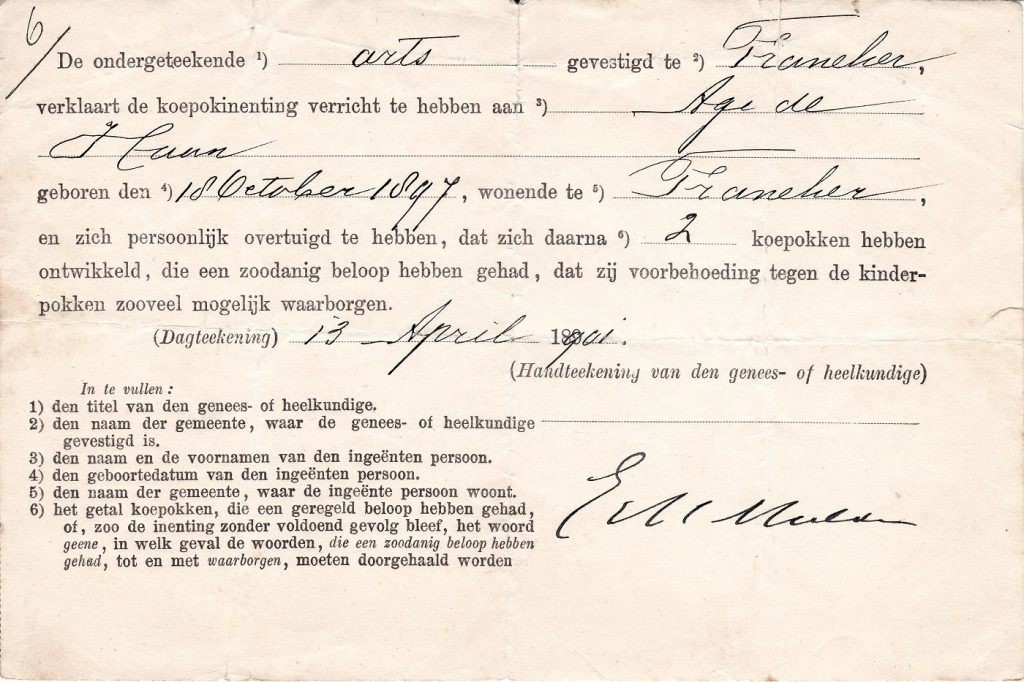 6/
De ondergeteekende 1) arts gevestigd te 2) Franeker,
verklaart de koepokinenting verricht te hebben aan 3) Age de
Haan
geboren den 4) 18 October 1897, wonende te 5) Franeker,
en zich persoonlijk overtuigd te hebben, dat zich daarna 6) 2 koepokken hebben
ontwikkeld, die een zoodanig beloop hebben gehad, dat zij voorbehoeding tegen de kinder-
pokken zooveel mogelijk waarborgen.
(Dagteekening) 13 April 1901.
(Handteekening van den genees- of heelkundige)
In te vullen:
1) den titel van den genees- of heelkundige.
2) den naam der gemeente, waar de genees- of heelkundige
gevestigd is.
3) den naam en de voornamen van den ingeënten persoon.
4) den geboortedatum van den ingeënten persoon.
5) den naam der gemeente, waar de ingeënte persoon woont.
6) het getal koepokken, die een geregeld beloop hebben gehad,
of, zoo de inenting zonder voldoend gevolg bleef, het woord
geene, in welk geval de woorden, die een zoodanig beloop hebben
gehad, tot en met waarborgen, moeten doorgehaald worden